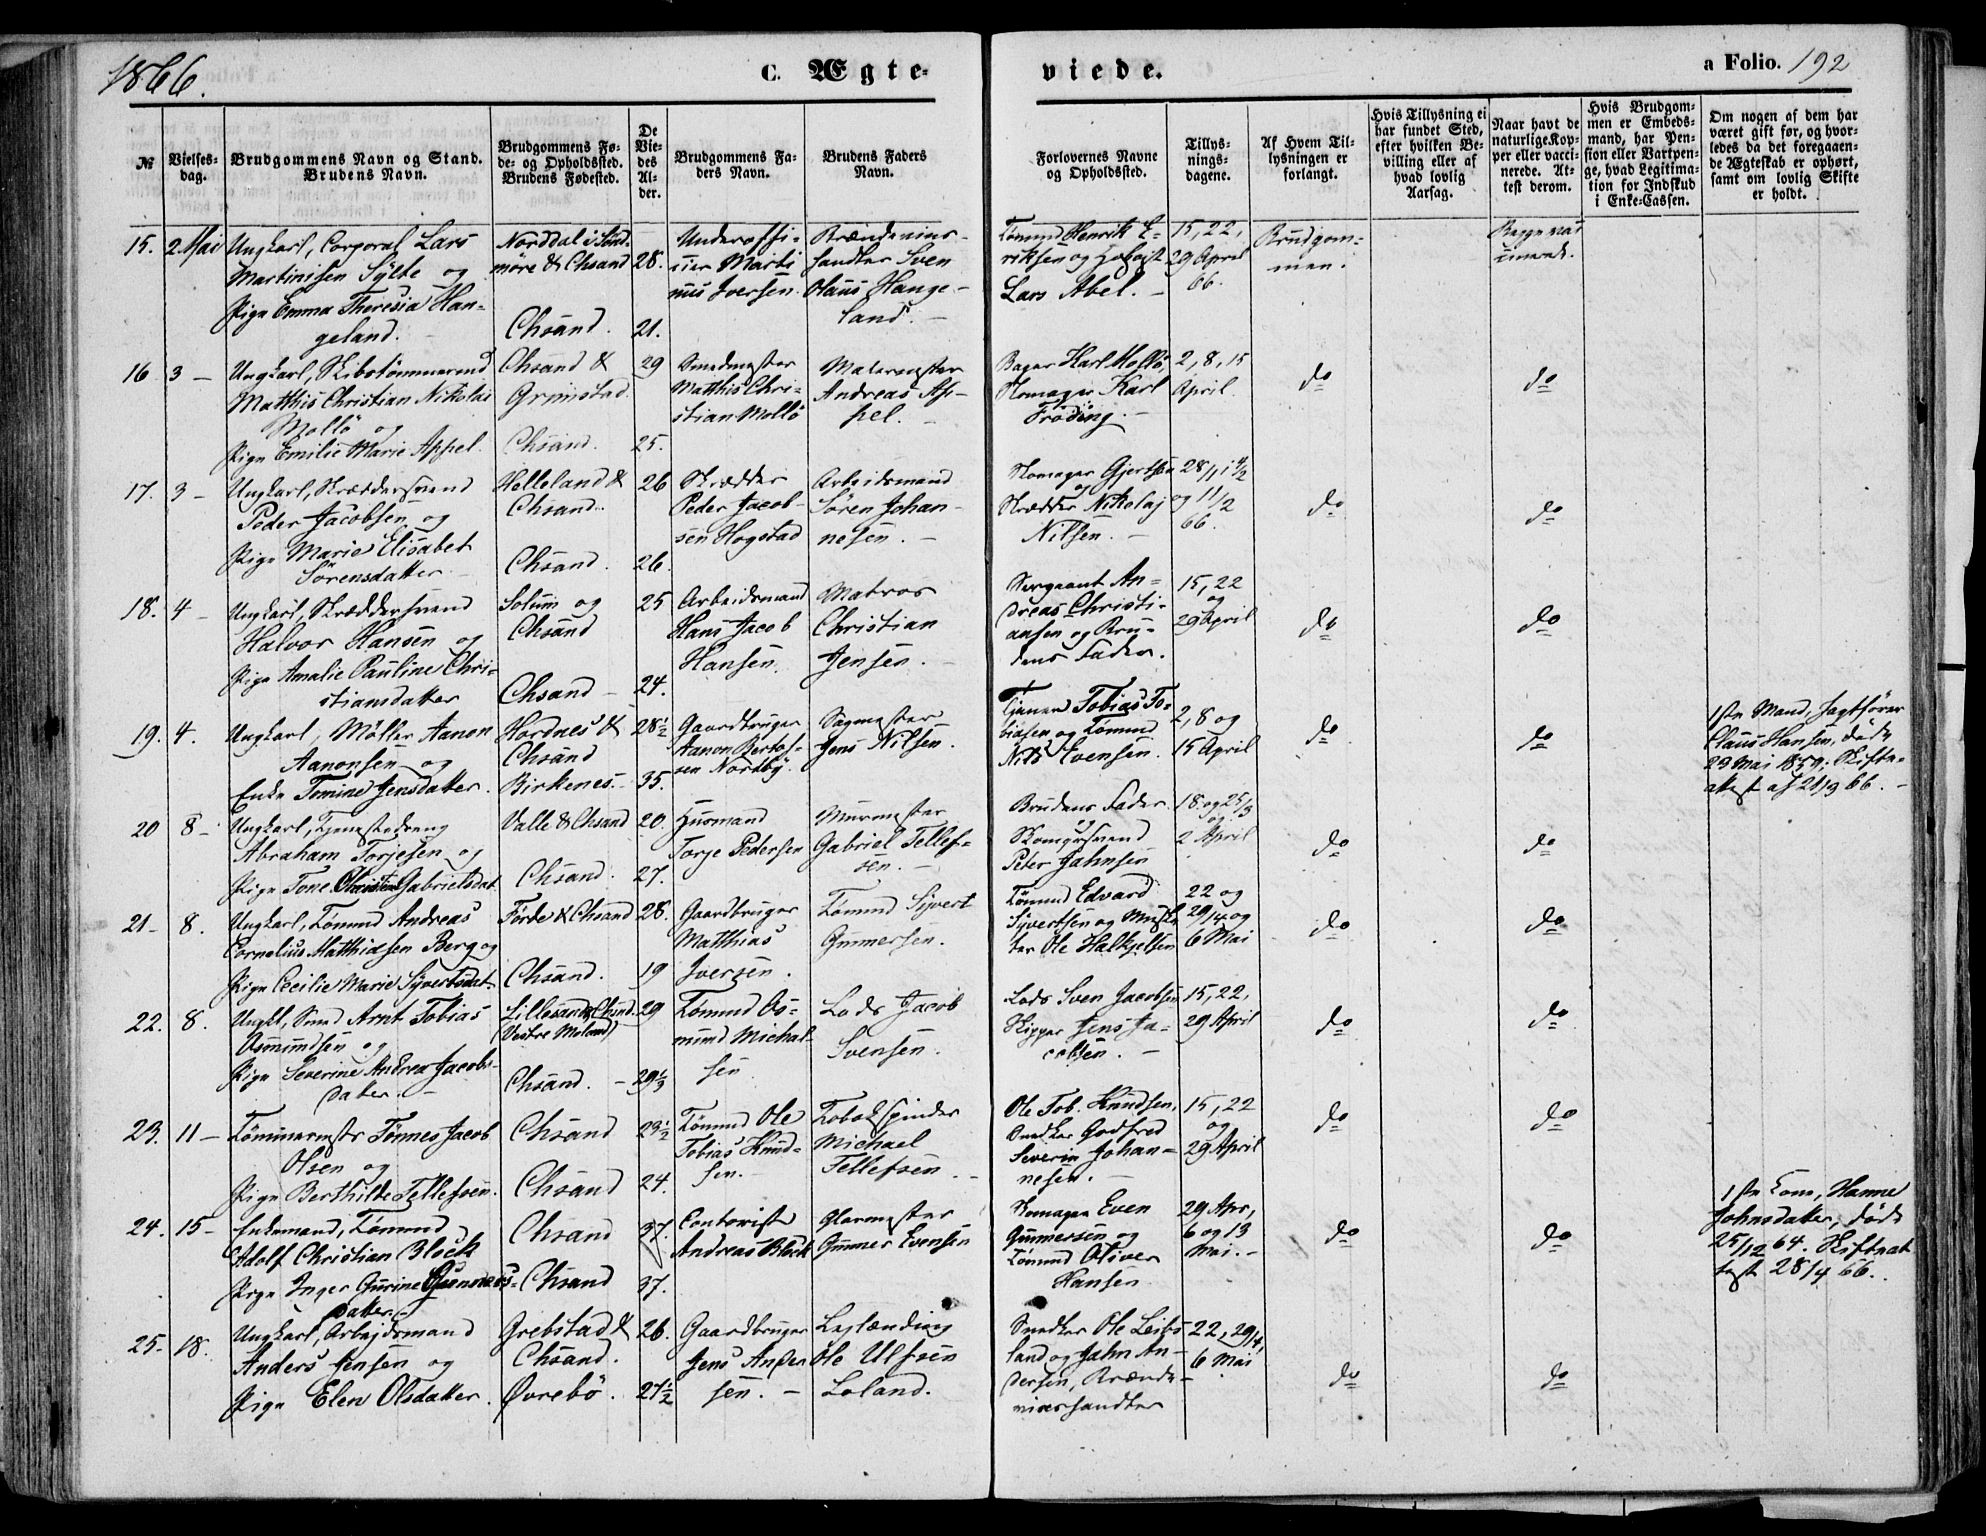 1866.
C. Ægte-
viede.
a Folio. 192
№
Vielses-
dag.
Brudgommens Navn og Stand.
Brudens Navn.
Brudgommens Fø-
de- og Opholdssted.
Brudens Fødested.
De
Vie-
des
Al-
der.
Brudgommens Fa-
ders Navn.
Brudens Faders
Navn.
Forlovernes Navne
og Opholdssted.
Tillys-
nings-
dagene.
Af Hvem Til-
lysningen er
forlangt.
Hvis Tillysning ei
har fundet Sted,
efter hvilken Be-
villing eller af
hvad lovlig
Aarsag.
Naar havt de
naturlige Kop-
per eller vacci-
nerede. At-
test derom.
Hvis Brudgom-
men er Embeds-
mand, har Pen-
sion eller Vartpen-
ge, hvad Legitima-
tion for Indskud
i Enke-Cassen.
Om nogen af dem har
været gift før, og hvor-
ledes da det foregaaen-
de Ægteskab er ophørt,
samt om lovlig Skifte
er holdt.
15. 2 Mai
Ungkarl, Corporal Lars
Martinisen Sylte og
Pige Emma Theresia Han-
geland.
Norddal i Sönd-
möre & Chsand
Chsand.
28.
21.
Underoffi-
cier Marti
nus Iversen
Brændeviins-
handler Sven
Olaus Hange-
land.
Tømmd Henrik E-
riksen og
Lars Abel.
15, 22,
29 April
66.
Brudgom-
men.
Begge vac
cinerede.
16 3 -
Ungkarl, Skibstömmermd
Matthis Christian Nikolai
Mollö og
Pige Emilie Marie Appel.
Chsand &
Grimstad
Chsand.
29
25.
Smedmester
Matthis Chri-
stian Mollö
Malermester
Andreas Ap-
pel.
Bager Karl Mollö,
Skomager Karl
Fröding.
2, 8, 15
April.
do
do
17. 3 -
Ungkarl, Skræddersvend
Peder Jacobsen og
Pige Marie Elisabet
Sörensdatter
Helleland &
Chsand.
Chsand.
26
26.
Skrædder
Peder Jacob-
sen Hogstad
Arbeidsmand
Sören Johan-
nesen.
Skomager Gjertsen
og
Skrædder Nikolaj
Nilsen.
28/1, 4/2
og 11/2
66.
do
do
18. 4 -
Ungkarl, Skræddersvend
Halvor Hansen og
Pige Amalie Pauline Chri-
stiansdatter
Solum og
Chsand
Chsand
25
24.
Arbeidsmand
Hans Jacob
Hansen
Matros
Christian
Jensen.
Sergeant An-
dreas Christi-
ansen og Bru-
dens Fader.
15, 22
og
29 April
do
do
19. 4.
Ungkarl, Møller Aanon
Aanonsen og
Enke Tomine Jensdatter.
Hordnes &
Chsand
Birkenes
28½
35.
Gaardbruger
Aanon Bertos-
sen Nordby.
Sagmester
Jens Nilsen.
Tjener Tobias To-
biasen og Tømmd
Nils Evensen.
2, 8 og
15 April
do
do
1ste Mand, Jagtfører
Claus Hansen, døde
29 Mai 1859; Skifte-
attest af 21/3 66.
20 8 -
Ungkarl, Tjenestedreng
Abraham Torjesen og
Pige Tone Christine Gabrielsdat
Valle & Chsand
Chsand.
20.
27.
Husmand
Torje Pedersen
Murmester
Gabriel Tellef-
sen.
Brudens Fader
og
Skomagersvend
Peter Jahnsen
18. og 25/3
og
2 April
do
do
21 - 8.
Ungkarl, Tømmd Andreas
Cornelius Matthiasen Berg og
Pige Cecilie Marie Syvertsdat
Förde & Chsand
Chsand.
28.
19
Gaardbruger
Matthias
Iversen.
Tømmd Syvert
Gunmersen.
Tømmd Edvard
Syvertsen og
ter Ole Halkjelsen
22 og
29/4 og
6 Mai
do
do
22. 8.
Ungkl, Smed Arnt Tobias
Osmundsen og
Pige Severine Andrea Jacobs-
datter.
Lillesand & Chsand.
(Vestre Moland)
Chsand.
29
29⅓
Tømmd Os-
mund Michal-
sen
Lods Jacob
Svensen.
Lods Sven Jacobsen
Skipper Jens Ja-
cobsen.
15, 22,
29 April
do
do
23. 11 -
Tömmermstr Tönnes Jacob
Olsen og
Pige Berthilde Tellefsen.
Chsand
Chsand
23½
24.
Tømmd Ole
Tobias Knud-
sen.
Tobakspinder
Michael
Tellefsen
Ole Tob. Knudsen,
Snedker Godfred
Severin Johan-
nesen.
15, 22
og
29 April
do
do
24. 15 -
Enkemand, Tømmd
Adolf Christian Block
Pige Inger Gurine Gunmers-
datter.
Chsand
Chsand
37.
37.
Contorist
Andreas Block
Glarmester
Gunmer Evensen
Skomager Even
Gunmersen og
Tømmd Oliver
Hansen
29 Apr,
6 og 13
Mai.
do
do
1ste Kone, Hanne
Johnsdatter, døde
25/12 64. Skifteat
test 28/4 66.
25. 18.
Ungkarl, Arbejdsmand
Anders Jensen og
Pige Elen Olsdatter.
Grebstad &
Chsand.
Øvrebö.
26.
27½
Gaardbruger
Jens Ander
sen.
Leilænding
Ole Ulfsen
Loland.
Snedker Ole Leibs
land og Jahn An-
dersen, Brænde-
viinshandler
22, 29/4,
6 Mai
do
do